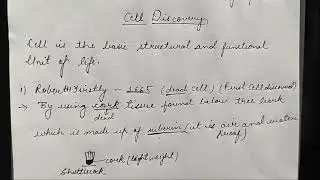 Cell Discovery
Cell is the basic structural and functional
Unit of life.
1) Robert Hooke Firstly - 1665 (dead cell) (First cell discovered)
→ By using cork tissue formed below tree bark
dead
which is made up of suberin (it is air and water
proof)
cork (light weight)
Shuttlecock